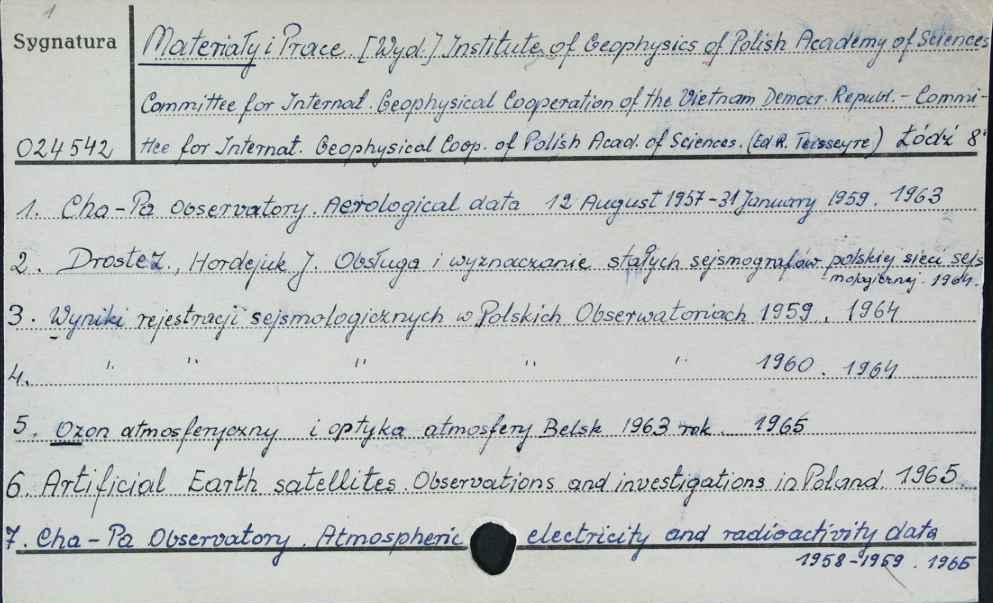 1
Sygnatura
Materiały i Prace. [Wyd.] Institute of Geophysics of Polish Academy of Sciences
Committee for Internat. Geophysical Cooperation of the Vietnam Democr. Republ. - Commi-
024542 ttee for Internat. Geophysical Coop. of Polish Acad. of Sciences. (Ed R. Teisseyre) Łódź 8°
1. Cha-Pa Observatory. Aerological data 12 August 1957-31 January 1959. 1963
2. Droste Z., Hordejuk J. Obsługa i wyznaczanie stałych sejsmografów polskiej sieci sejs
mologicznej. 1964.
3. Wyniki rejestracji sejsmologicznych w Polskich Obserwatoriach 1959. 1964
4. " " " " " 1960. 1964
5. Ozon atmosferyczny i optyka atmosfery Belsk 1963 rok. 1965
6. Artificial Earth satellites. Observations and investigations in Poland. 1965.
7. Cha-Pa Observatory. Atmospheric electricity and radioactivity data
1958-1959. 1965